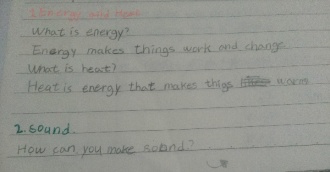 1. Energy and Heat
What is energy?
Energy makes things work and change.
What is heat?
Heat is energy that makes thigs warm
2. sound.
How can you make sound?